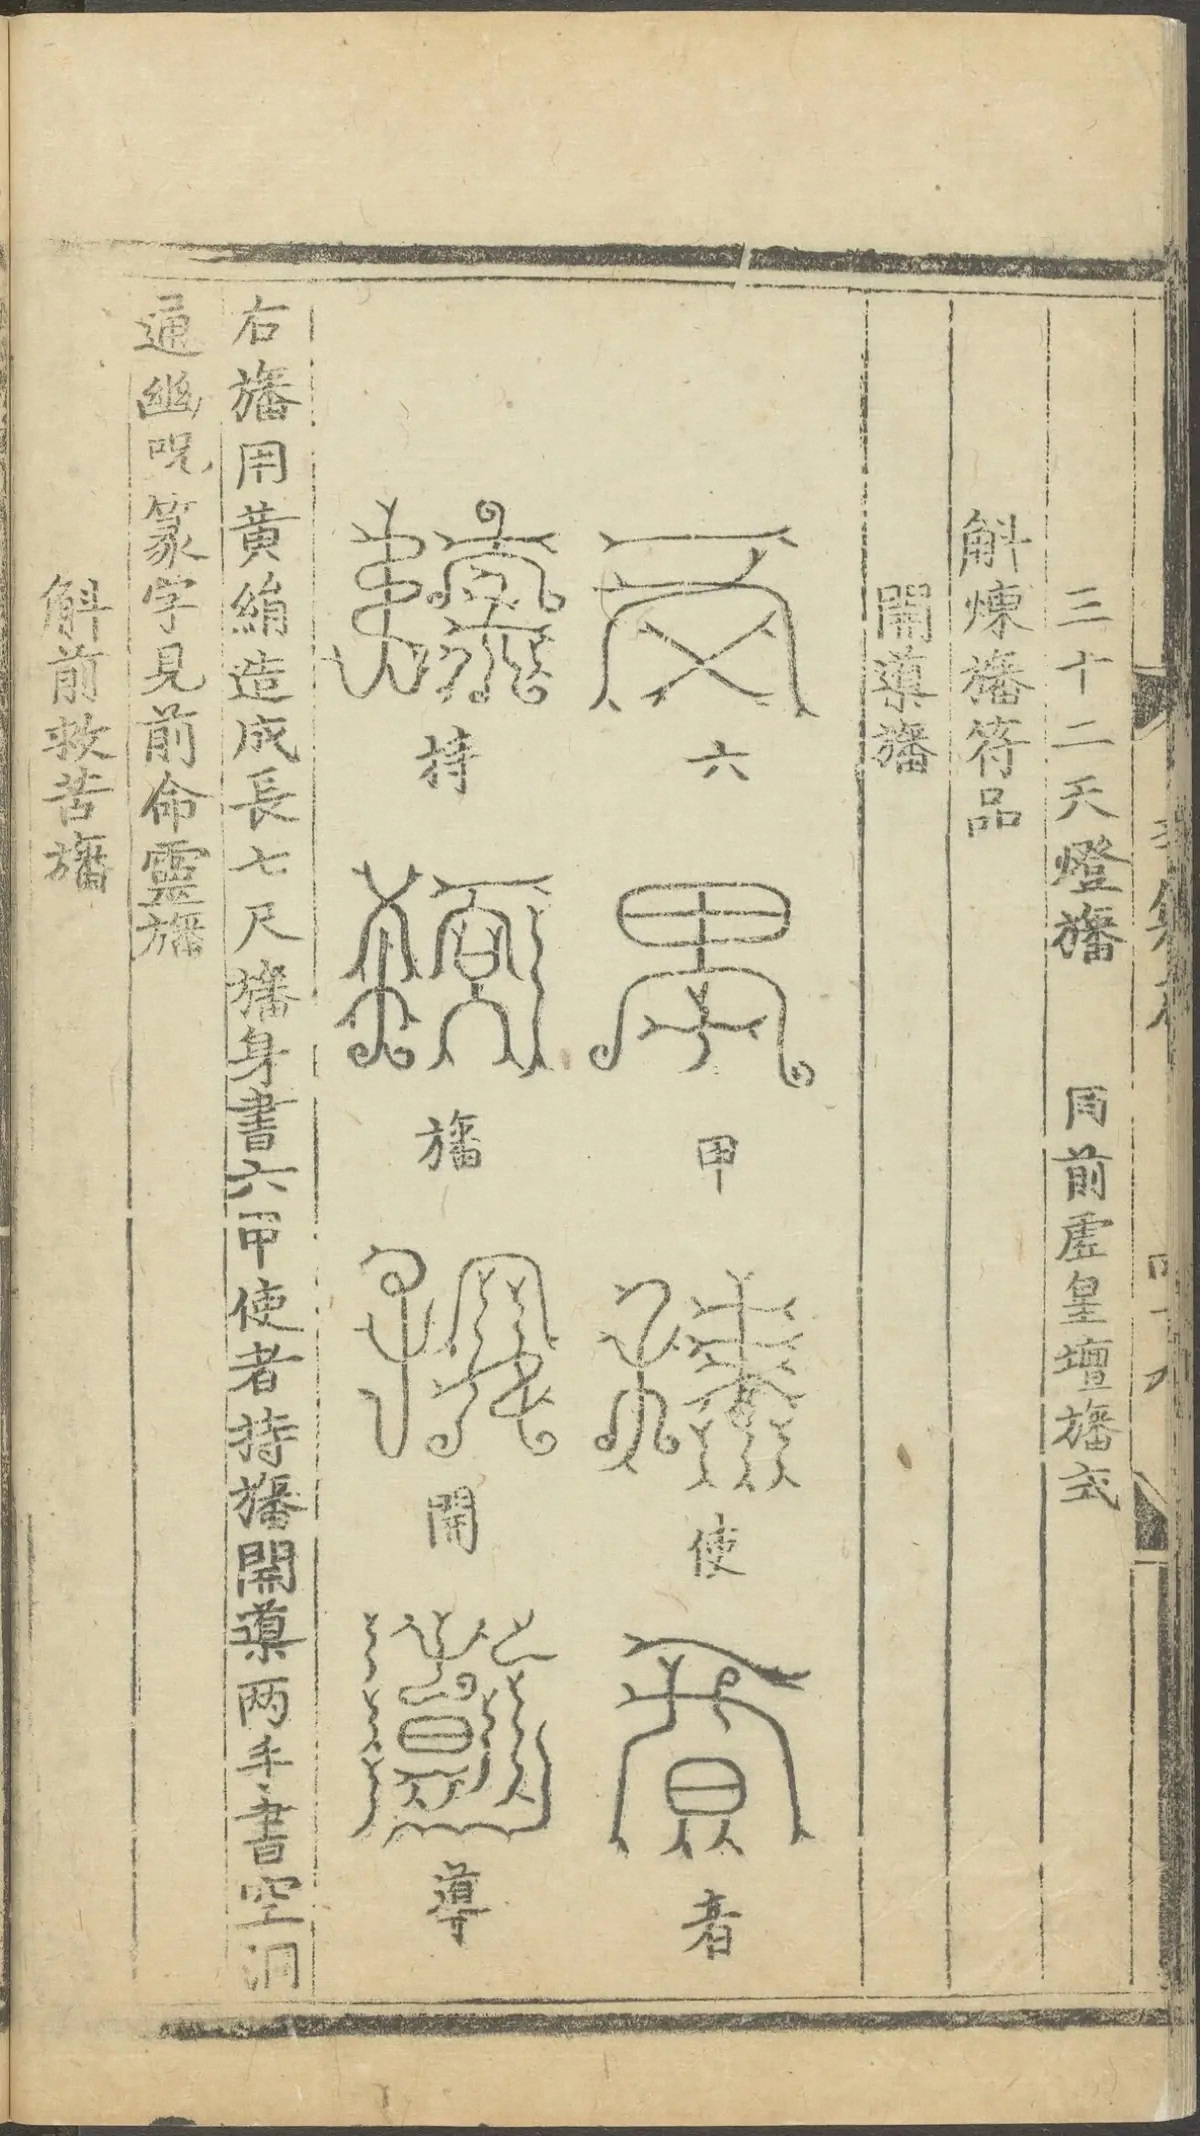 三十二天燈旛 用前虛皇壇旛式
斛煉旛符品
開導旛
六甲使者
持旛開導
右旛用黃絹造成長七尺旛身書六甲使者持旛開導两手書空洞
通幽呪篆字見前命靈旛
斛前救苦旛